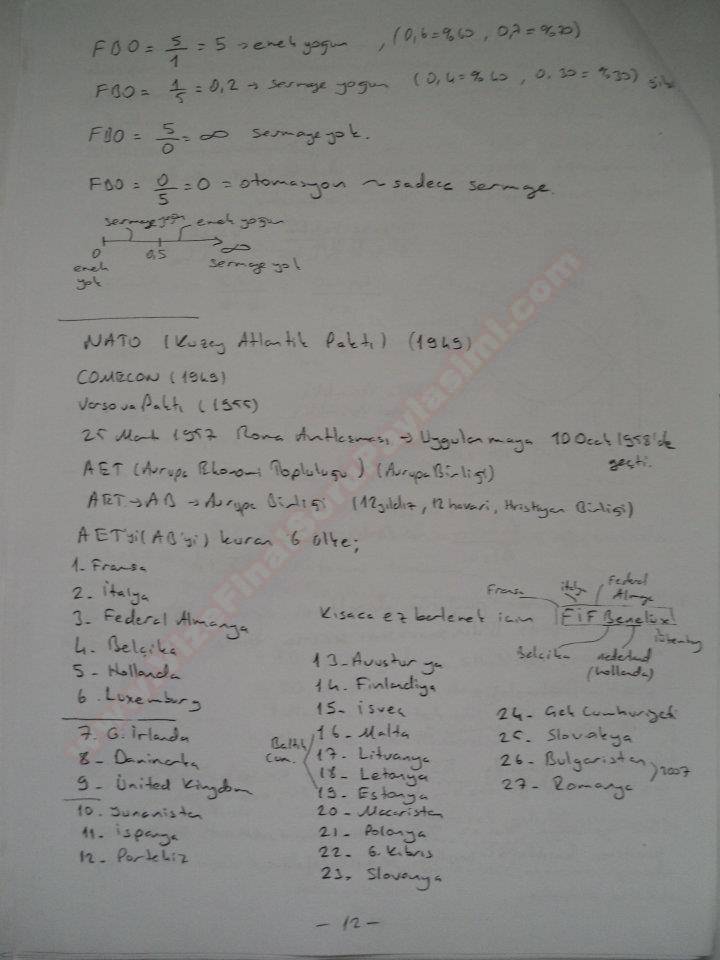 FBO = 5/1 = 5 → emek yoğun , (0,6=%60 , 0,7=%70)
FBO = 1/5 = 0,2 → sermaye yoğun (0,4=%40 , 0,30=%30) gibi
FBO = 5/0 = ∞ sermaye yok.
FBO = 0/5 = 0 = otomasyon ~ sadece sermaye.
sermaye yoğun emek yoğun
0 0,5 ∞
emek yok sermaye yok
NATO (Kuzey Atlantik Paktı) (1949)
COMECON (1949)
Varşova Paktı (1955)
25 Mart 1957 Roma Antlaşması → Uygulanmaya 10 Ocak 1958'de geçti.
AET (Avrupa Ekonomi Topluluğu) (Avrupa Birliği)
AET → AB → Avrupa Birliği (12 yıldız, 12 havari, Hristiyan Birliği)
AET'yi (AB'yi) kuran 6 ülke;
1- Fransa
2- İtalya
3- Federal Almanya
4- Belçika
5- Hollanda
6- Luxemburg
Kısaca ezberlemek için FİF Benelüx
Fransa italya Federal Almanya
Belçika nederland (hollanda) lüksemburg
7. G. İrlanda
8- Danimarka
9- United Kingdom
10. Yunanistan
11. ispanya
12- Portekiz
13- Avusturya
14. Finlandiya
15- isveç
16- Malta
Baltık Cum.
17- Litvanya
18- Letonya
19- Estonya
20- Macaristan
21- Polonya
22- G. Kıbrıs
23. Slovenya
24- Çek Cumhuriyeti
25- Slovakya
26- Bulgaristan
27- Romanya
2007
- 12 -
www.VizeFinalSoruPaylasimi.com